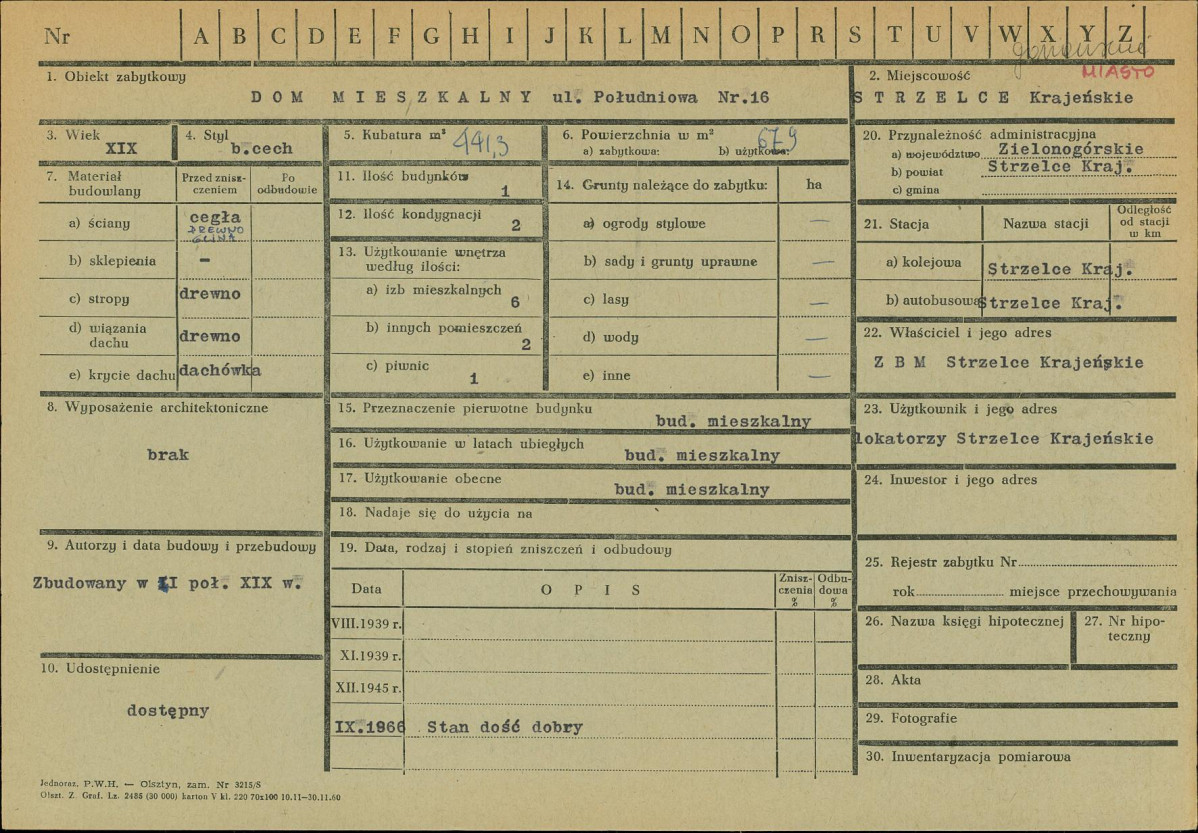 Nr A B C D E F G H I J K L M N O P R S T U V W X Y Z
MIASTO
1. Obiekt zabytkowy
DOM MIESZKALNY ul. Południowa Nr.16
2. Miejscowość
STRZELCE Krajeńskie
3. Wiek
XIX
4. Styl
b.cech
5. Kubatura m³
441,3
6. Powierzchnia w m²
a) zabytkowa: b) użytkowa:
679
7. Materiał budowlany
Przed znisz-
czeniem
Po
odbudowie
a) ściany
cegła
DREWNO
GLINA
b) sklepienia
–
c) stropy
drewno
d) wiązania
dachu
drewno
e) krycie dachu
dachówka
8. Wyposażenie architektoniczne
brak
9. Autorzy i data budowy i przebudowy
Zbudowany w II poł. XIX w.
10. Udostępnienie
dostępny
11. Ilość budynków
1
12. Ilość kondygnacji
2
13. Użytkowanie wnętrza
według ilości:
a) izb mieszkalnych
6
b) innych pomieszczeń
2
c) piwnic
1
14. Grunty należące do zabytku: ha
a) ogrody stylowe —
b) sady i grunty uprawne —
c) lasy —
d) wody —
e) inne —
15. Przeznaczenie pierwotne budynku
bud. mieszkalny
16. Użytkowanie w latach ubiegłych
bud. mieszkalny
17. Użytkowanie obecne
bud. mieszkalny
18. Nadaje się do użycia na
19. Data, rodzaj i stopień zniszczeń i odbudowy
Data
OPIS
Znisz-
czenia
%
Odbu-
dowa
%
VIII.1939 r.
XI.1939 r.
XII.1945 r.
IX.1966 Stan dość dobry
20. Przynależność administracyjna
a) województwo Zielonogórskie
b) powiat Strzelce Kraj.
c) gmina
21. Stacja
Nazwa stacji
Odległość
od stacji
w km
a) kolejowa Strzelce Kraj.
b) autobusowa Strzelce Kraj.
22. Właściciel i jego adres
Z B M Strzelce Krajeńskie
23. Użytkownik i jego adres
lokatorzy Strzelce Krajeńskie
24. Inwestor i jego adres
25. Rejestr zabytku Nr
rok miejsce przechowywania
26. Nazwa księgi hipotecznej
27. Nr hipo-
teczny
28. Akta
29. Fotografie
30. Inwentaryzacja pomiarowa
Jednoraz. P.W.H. — Olsztyn, zam. Nr 3215/S
Olszt. Z. Graf. Lz. 2485 (30 000) karton V kl. 220 70x100 10.11—30.11.60